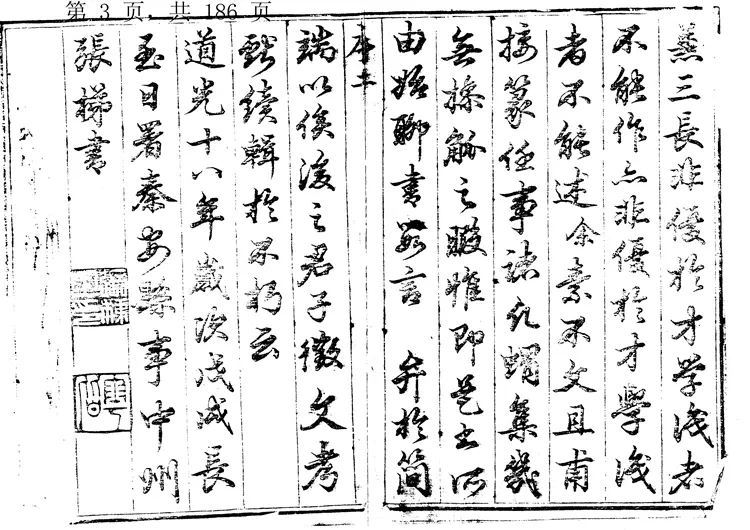 第 3 页，共 186 页
兼三長非優於才学識者
不能作亦非優於才學識
者不能述余素不文且甫
接篆任事諸凡蝟集幾
無操觚之暇惟即是書所
由始聊書数言 弁於簡
序二
端以俟後之君子徵文考
獻續輯於不朽云
道光十八年歲次戊戌長
至日署秦安縣事中州
張 書